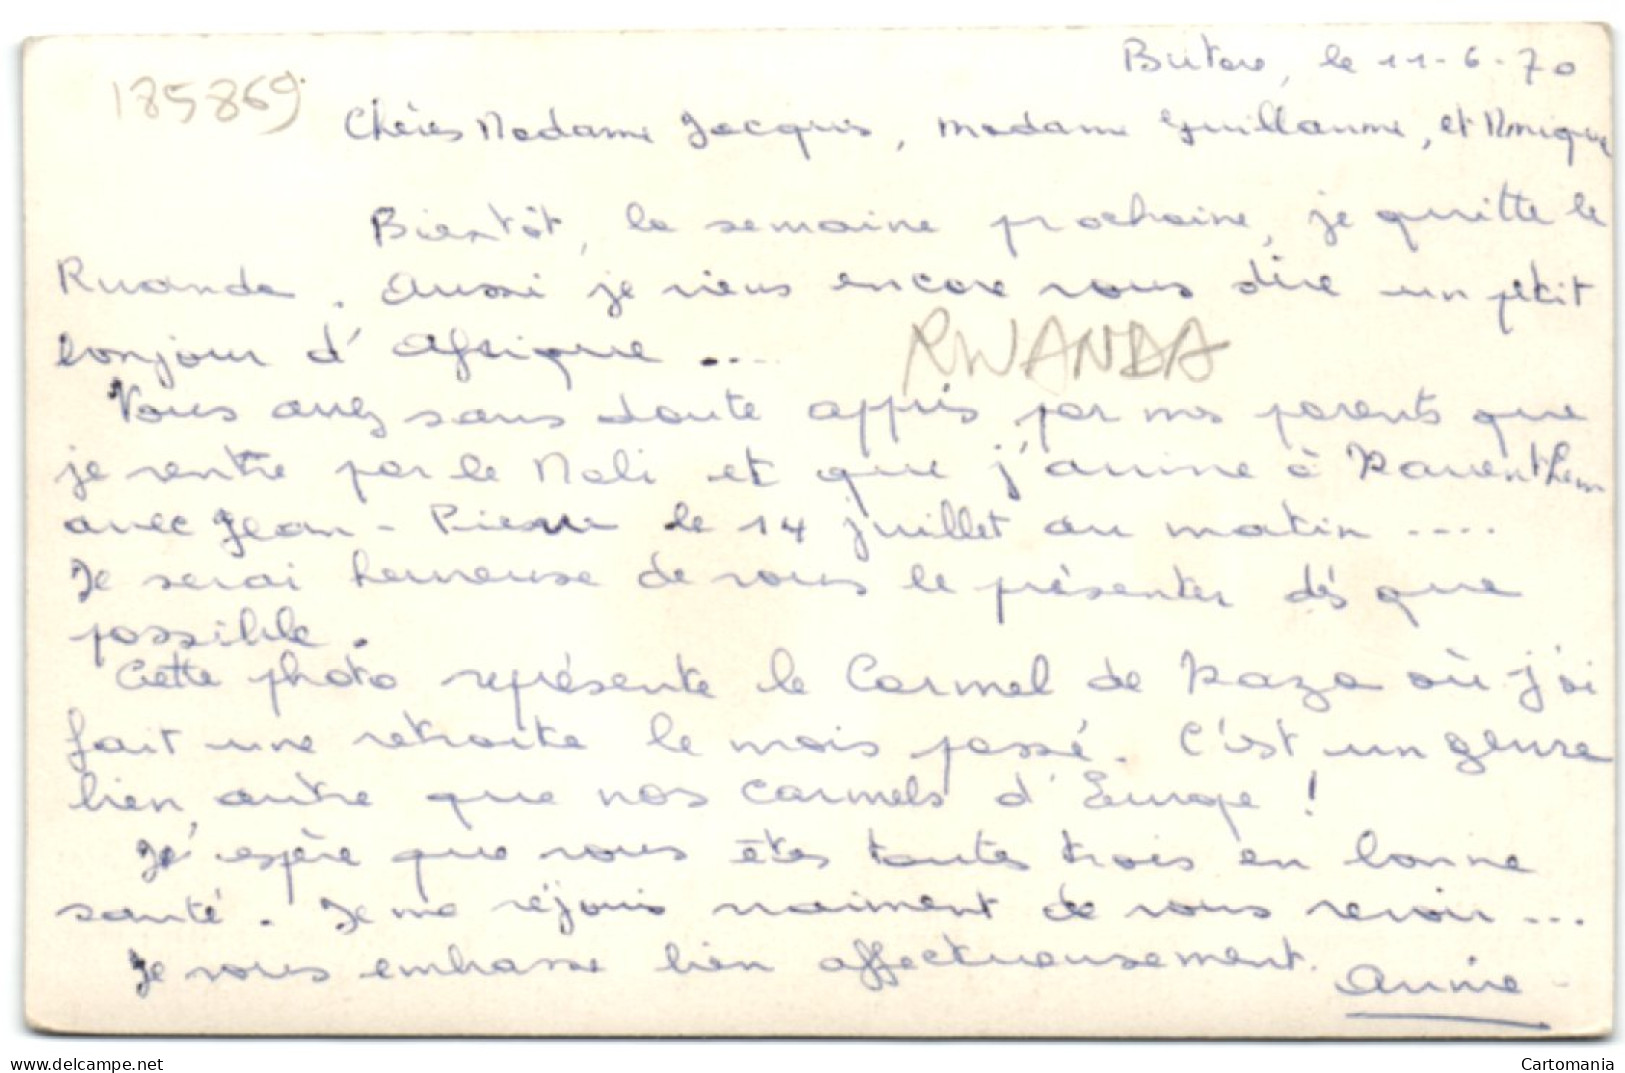 Butare, le 11-6-70
185869
Chères Madame Jacques, Madame Guillaume, et Monique
Bientôt, la semaine prochaine, je quitte le
Ruanda. Aussi je viens encore vous dire un petit
bonjour d'Afrique ....
RWANDA
Vous avez sans doute appris par mes parents que
je rentre par le Mali et que j'arrive à
avec Jean-Pierre le 14 juillet au matin ....
Je serai heureuse de vous le présenter dès que
possible.
Cette photo représente le Carmel de Zaza où j'ai
fait une retraite le mois passé. C'est un genre
bien autre que nos carmels d'Europe !
J'espère que vous êtes toutes trois en bonne
santé. Je me réjouis vraiment de vous revoir ...
Je vous embrasse bien affectueusement.
Annie
delcampe.net
Cartomania